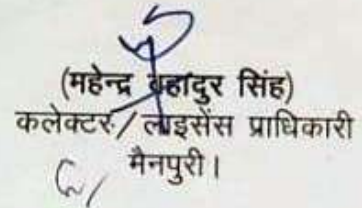 (महेन्द्र बहादुर सिंह)
कलेक्टर/लाइसेंस प्राधिकारी
मैनपुरी।